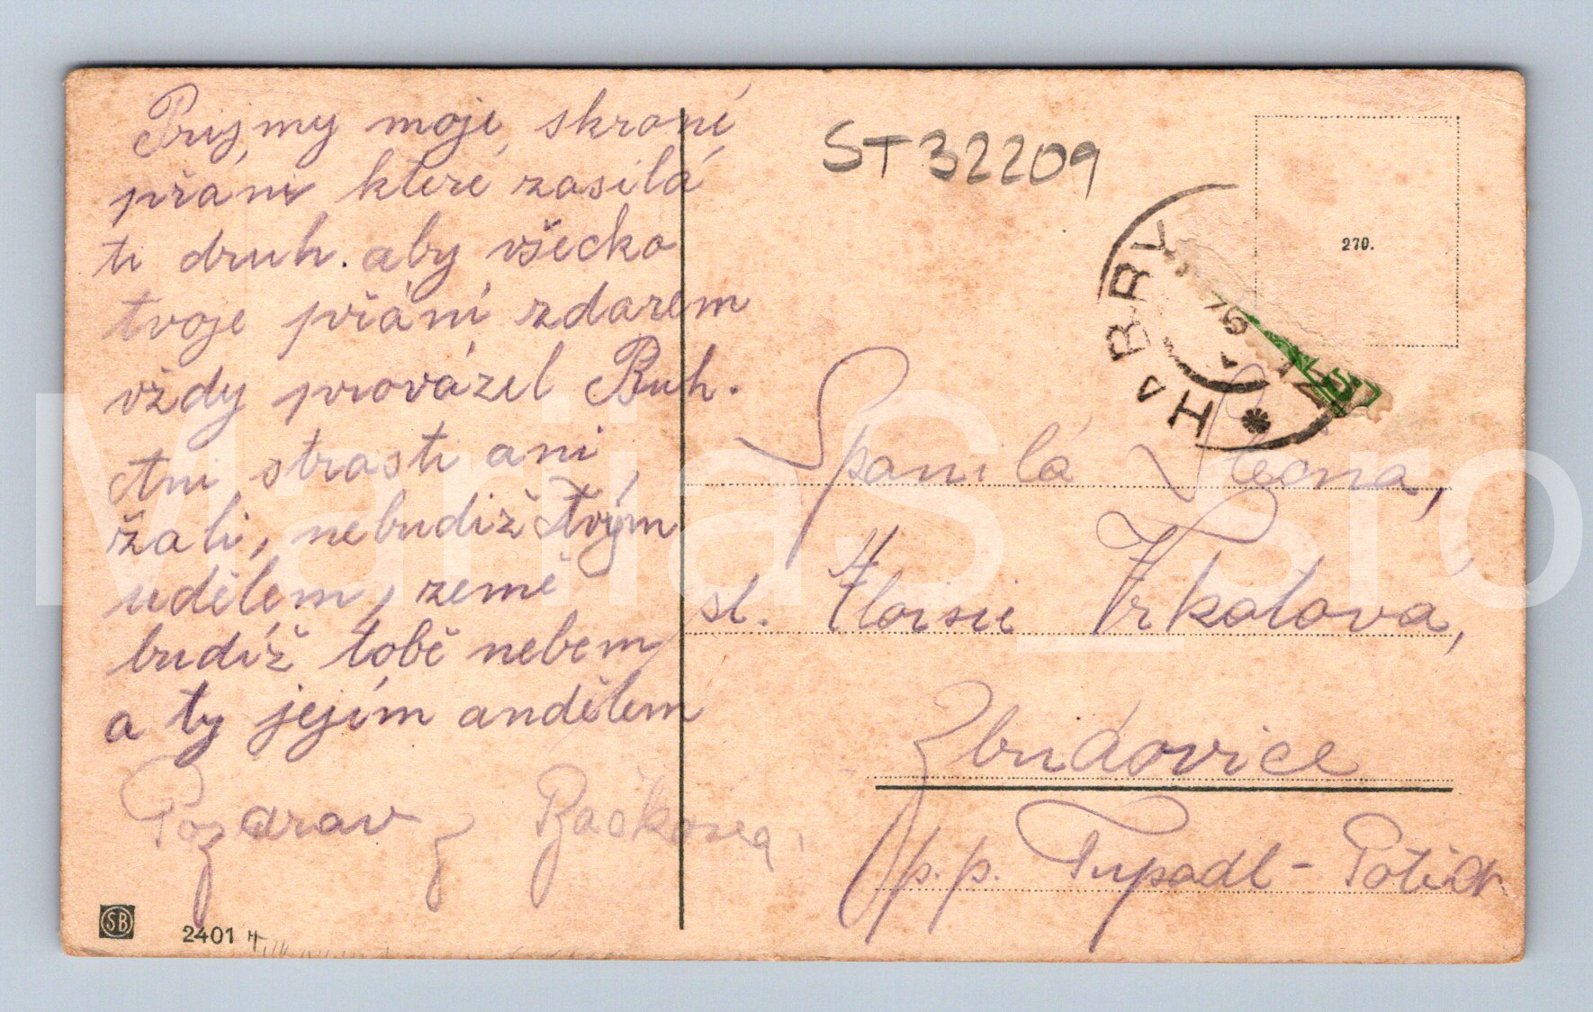 Prijmy moje skroné
přáni které zasilá
ti druh. aby všecko
tvoje přáni zdarem
vždy provázel Buh.
Ani strasti ani
žali, nebudiž Tvým
udělem, země
budiž tobě nebem
a ty jejím andělem
Pozdrav z Bačkova,
SB
2401
ST32209
HABRY
270.
Spanilá Slečna,
sl. Aloisie Vrkotova,
Zbudovice
p.p. Tupadl - Potěch
MariaS_sro